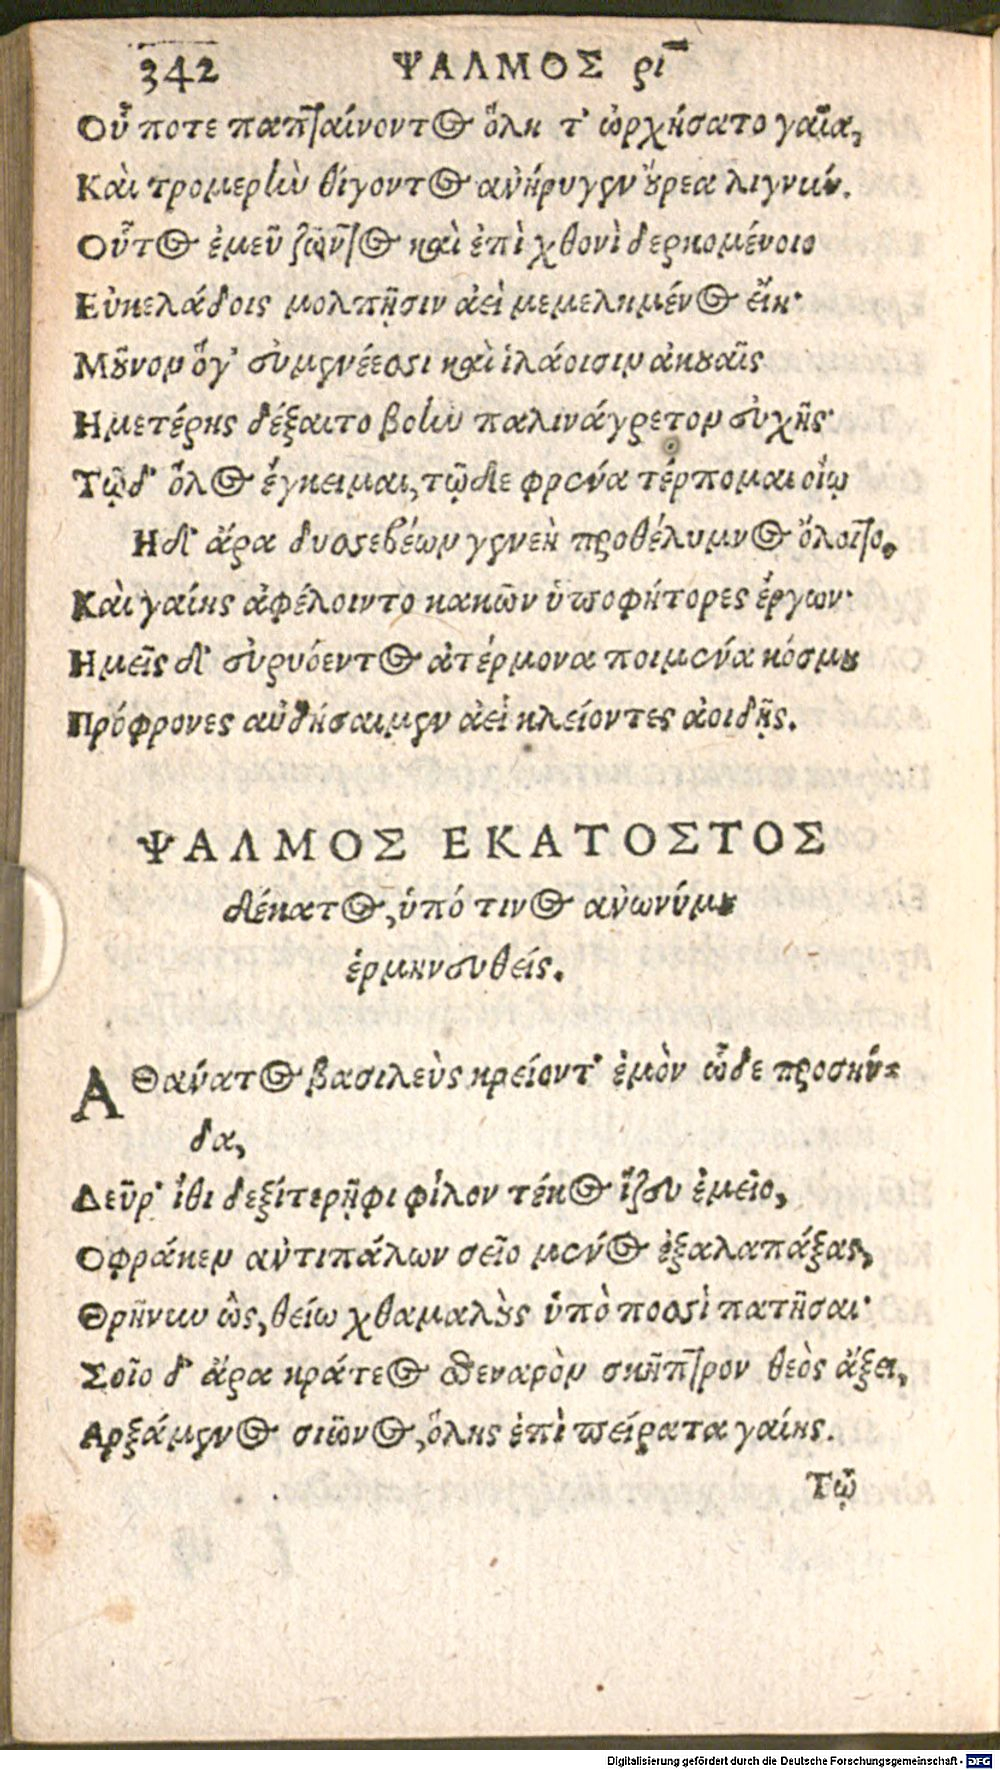 342 ΨΑΛΜΟΣ ρι
Οὗ ποτε παπταίνοντος ὅλη τ' ὠρχήσατο γαῖα,
Καὶ τρομερὴν θίγοντος ἀνήρυγεν οὔρεα λιγνύν.
Οὗτος ἐμεῦ ζῶντος καὶ ἐπὶ χθονὶ δερκομένοιο
Εὐκελάδοις μολπῇσιν ἀεὶ μεμελημένος εἴη·
Μοῦνον ὅγ' εὐμενέεσσι καὶ ἱλάοισιν ἀκουαῖς
Ημετέρης δέξαιτο βοὴν παλινάγρετον εὐχῆς·
Τῷ δ' ὅλος ἔγκειμαι, τῷδε φρένα τέρπομαι οἴῳ
Η δ' ἄρα δυσσεβέων γενεὴ προθέλυμνος ὄλοιτο,
Καὶ γαίης ἀφέλοιντο κακῶν ὑποφήτορες ἔργων·
Ημεῖς δ' εὐρυόεντος ἀτέρμονα ποιμένα κόσμου
Πρόφρονες αὐδήσαιμεν ἀεὶ κλείοντες ἀοιδῇς.
ΨΑΛΜΟΣ ΕΚΑΤΟΣΤΟΣ
δέκατος, ὑπό τινος ἀνωνύμου
ἑρμηνευθείς.
ΑΘανάτος βασιλεὺς κρείοντ' ἐμὸν ὧδε προσηύ-
δα,
Δεῦρ' ἴθι δεξιτερῇφι φίλον τέκος ἵζευ ἐμεῖο,
Οφράκεν ἀντιπάλων σεῖο μένος ἐξαλαπάξας,
Θρῆνυν ὣς, θείω χθαμαλοὺς ὑπὸ ποσσὶ πατῆσαι·
Σοῖο δ' ἄρα κράτεος σθεναρὸν σκῆπτρον θεὸς ἄξει,
Αρξάμενος σιῶνος, ὅλης ἐπὶ πείρατα γαίης.
Τῷ
Digitalisierung gefördert durch die Deutsche Forschungsgemeinschaft - DFG